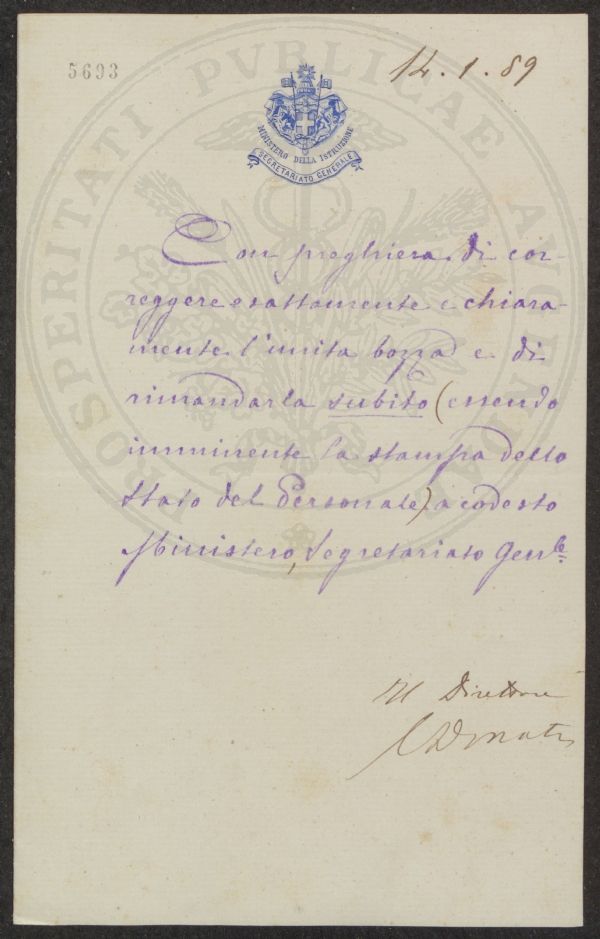 5693
14.1.89
PROSPERITATI PVBLICAE AVGENDAE
MINISTERO DELLA ISTRUZIONE
SEGRETARIATO GENERALE
Con preghiera di cor-
reggere esattamente e chiara-
mente l'unita bozza e di
rimandarla subito (essendo
imminente la stampa dello
Stato del Personale) a codesto
Ministero, Segretariato Genle:
Il Direttore
CDonati